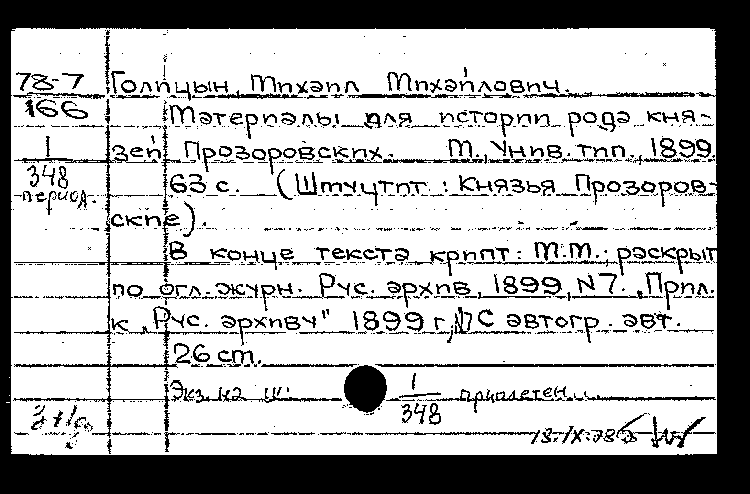 78-7 Голицын, Михаил Михайлович.
166 Материалы для истории рода кня-
1 зей Прозоровских. М., Унив. тип., 1899.
348 63 с. (Шмуцтит.: Князья Прозоров-
период. ские).
В конце текста крипт: М.М.; раскрыт
по огл. журн. Рус. архив, 1899, N7. „Прил.
к „Рус. архиву" 1899 г, N7 С автогр. авт.
26 см.
Экз. на ш. 1/348 приплетен...
18.IX.78